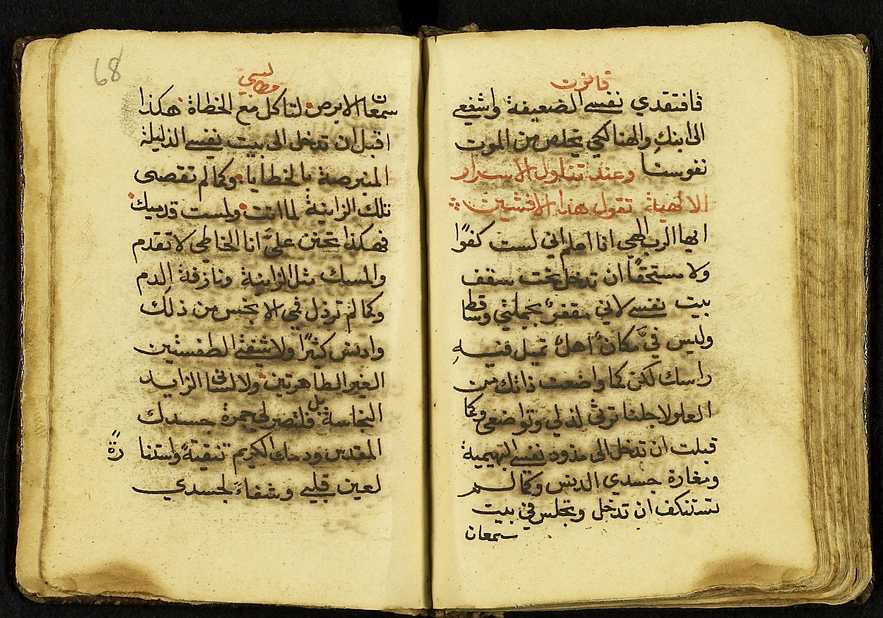 قانون
فافتقدي نفسي الضعيفة واشفعي
الى ابنك والهنا لكي يخلص من الموت
نفوسنا وعند تناول الاسرار
الالهية تقول هذا الافشين
ايها الرب الهي انا اعلم اني لست كفوًا
ولا مستحقًا ان تدخل تحت سقف
بيت نفسي لاني مقفر بجملتي وساقط
وليس فيَّ مكانٌ اهلٌ تميل فيه
راسك لكن كما واضعت ذاتك من
العلو لاجلنا ترفق لذلي وتواضعي وكما
قبلت ان تدخل الى مذود نفسي البهيمية
ومغارة جسدي الدنس وكما لم
تستنكف ان تدخل وتجلس في بيت
سمعان
68
سمعان الابرص لتاكل مع الخطاة هكذا
اقبل ان تدخل الى بيت نفسي الذليلة
المتبرصة بالخطايا وكما لم تقصى
تلك الزانية لما اتت ولمست قدميك
فهكذا تحنن عليَّ انا الخاطي لاتقدم
والمسك مثل الزانية ونازفة الدم
وكما لم ترذل في الانجس من ذلك
وادنس كثيرًا ولا شفتي الطفستين
الغير الطاهرتين ولا لساني الزايد
النجاسة بل فلتصر لي جمرة جسدك
المقدس ودمك الكريم تنقيةً واستنارةً
لعين قلبي وشفاءً لجسدي